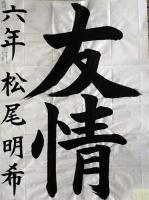 友情
六年 松尾明希